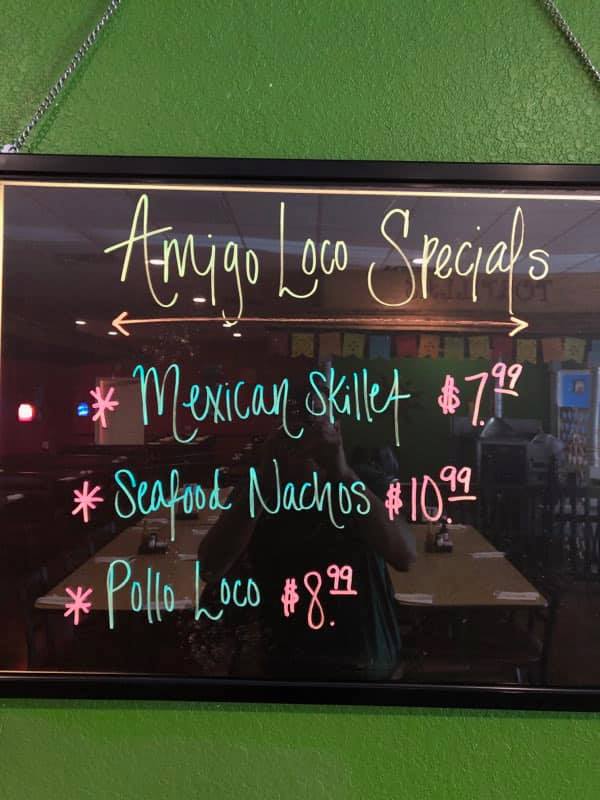 Amigo Loco Specials
* Mexican Skillet $7.99
* Seafood Nachos $10.99
* Pollo Loco $8.99